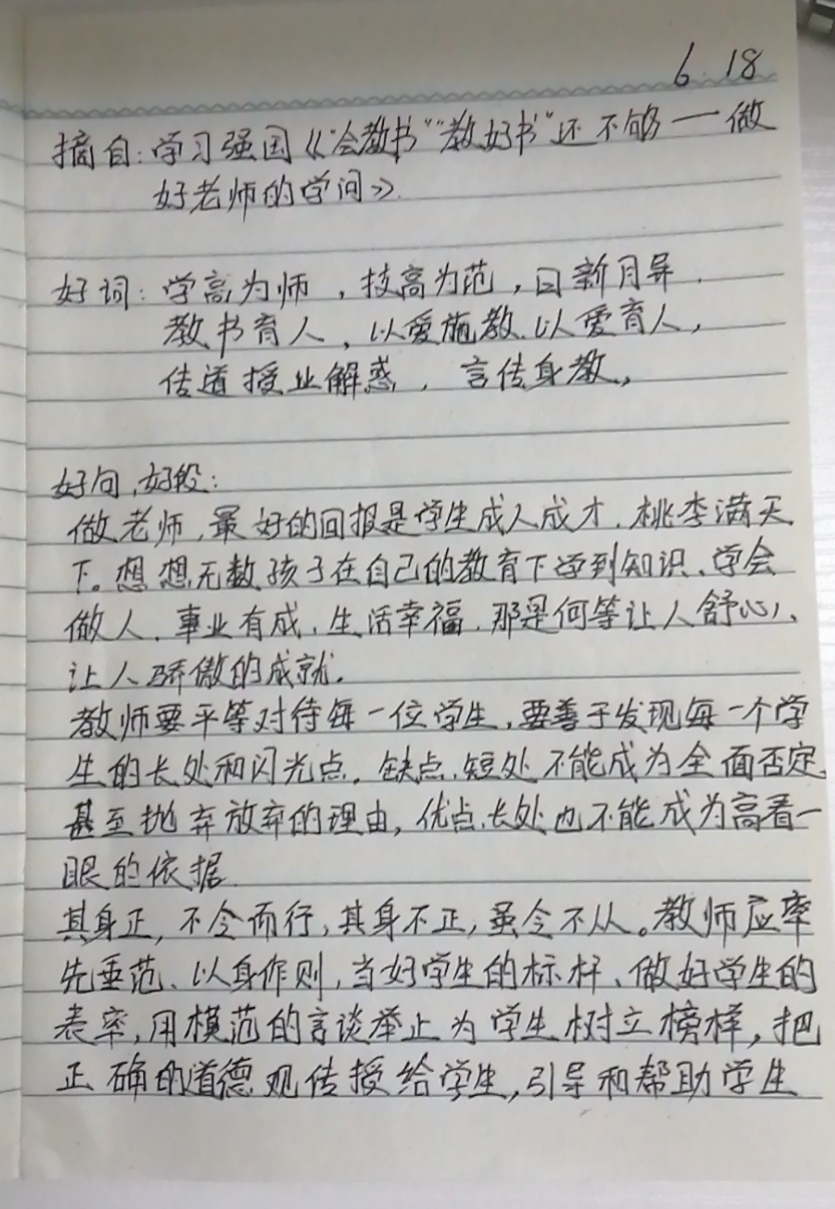 6.18
摘自:学习强国《"会教书""教好书"还不够一做
好老师的学问》.
好词:学高为师,技高为范,日新月异.
教书育人、以爱施教、以爱育人,
传道授业解惑,言传身教,
好句、好段:
做老师,最好的回报是学生成人成才、桃李满天
下。想想无数孩子在自己的教育下学到知识、学会
做人、事业有成、生活幸福,那是何等让人舒心、
让人骄傲的成就.
教师要平等对待每一位学生,要善于发现每一个学
生的长处和闪光点,缺点、短处不能成为全面否定、
甚至抛弃放弃的理由,优点、长处也不能成为高看一
眼的依据.
其身正,不令而行,其身不正,虽令不从。教师应率
先垂范、以身作则,当好学生的标杆、做好学生的
表率,用模范的言谈举止为学生树立榜样,把
正确的道德观传授给学生,引导和帮助学生